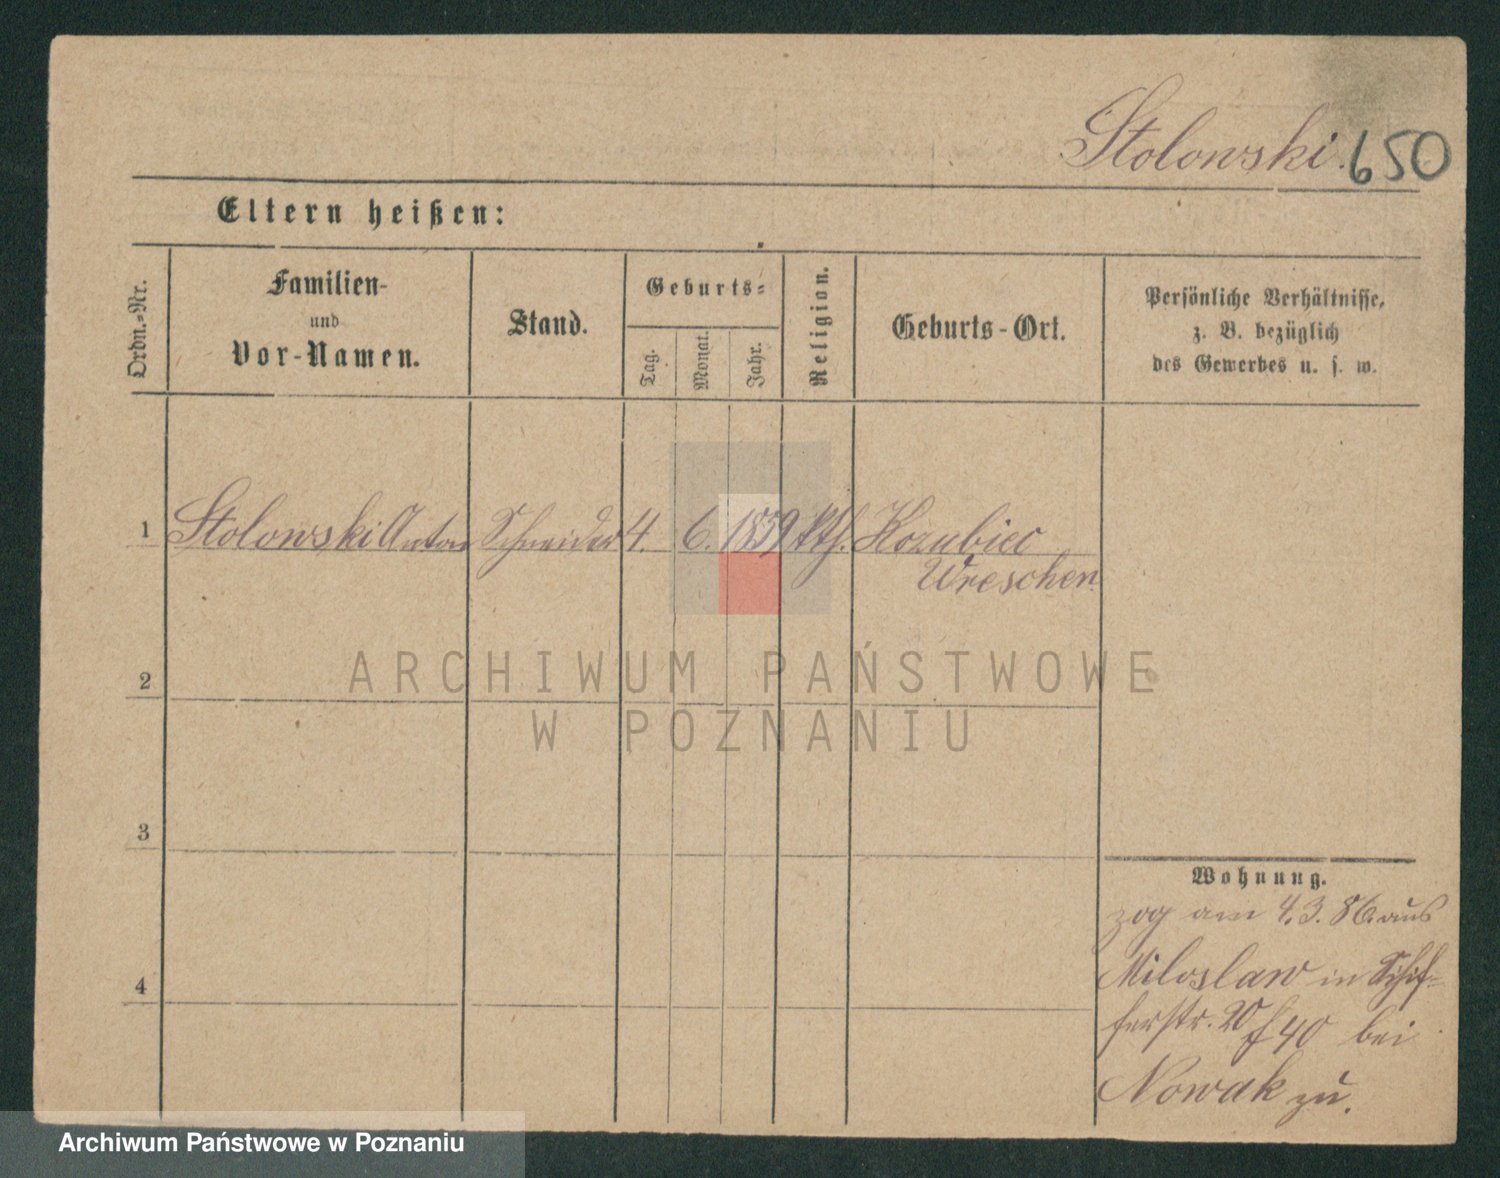 Stolowski. 650
Eltern heißen:
Ordn.-Nr.
Familien-
und
Vor-Namen.
Stand.
Geburts-
Tag.
Monat.
Jahr.
Religion.
Geburts-Ort.
Persönliche Verhältnisse,
z. B. bezüglich
des Gewerbes u. s. w.
1 Stolowski Anton Schneider 4. 6. 1859 kth. Kozubiec
Wreschen
2
3
4
Wohnung.
zog am 4.3.86. aus
Miloslaw in Schif-
ferstr. 20 f 40 bei
Nowak zu.
ARCHIWUM PAŃSTWOWE
W POZNANIU
Archiwum Państwowe w Poznaniu